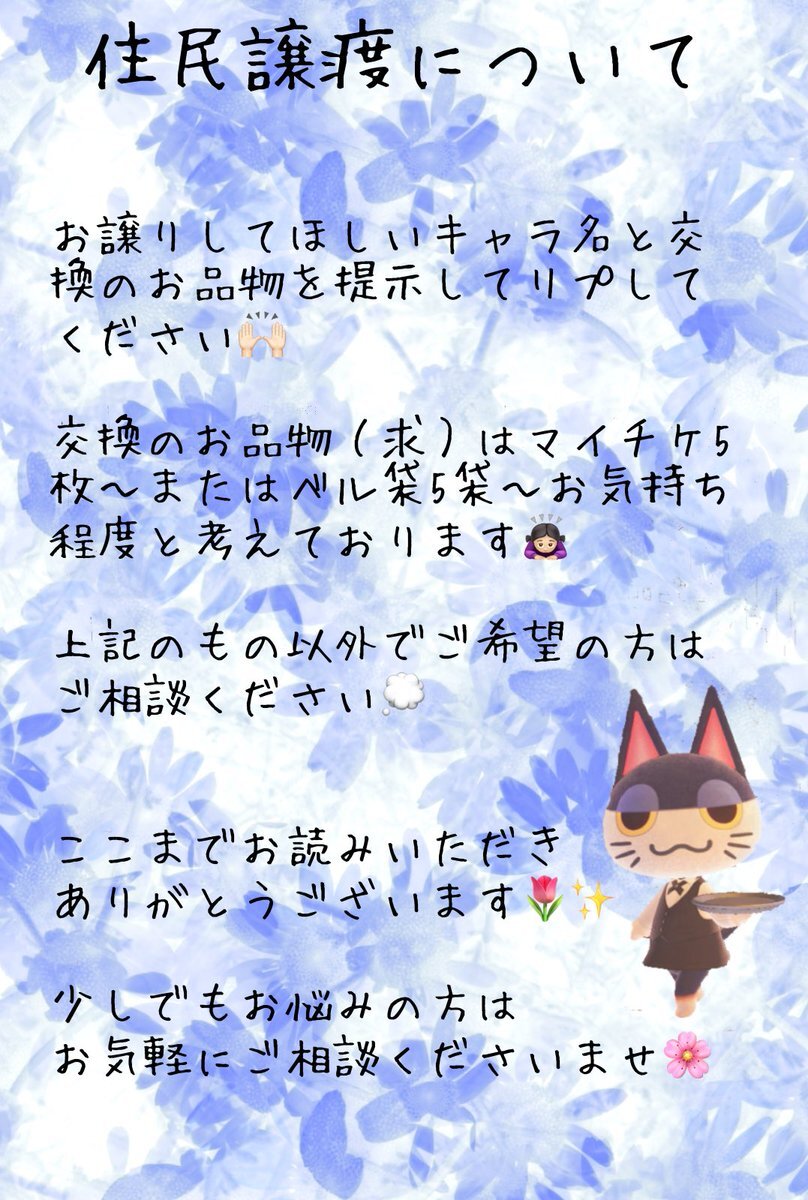 住民譲渡について
お譲りしてほしいキャラ名と交
換のお品物を提示してリプして
ください🙌🏻
交換のお品物(求)はマイチケ5
枚〜またはベル袋5袋〜お気持ち
程度と考えております🙇🏻‍♀️
上記のもの以外でご希望の方は
ご相談ください💭
ここまでお読みいただき
ありがとうございます🌷✨
少しでもお悩みの方は
お気軽にご相談くださいませ🌸